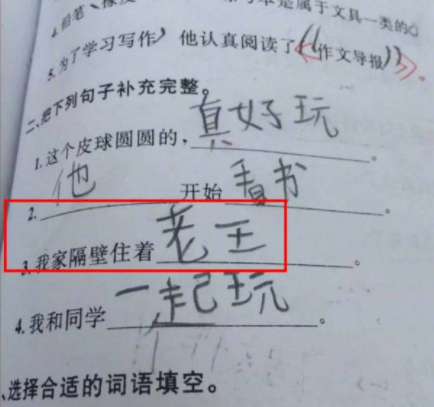 4.铅笔、橡皮
是属于文具一类的。
5.为了学习写作，他认真阅读了《作文导报》。
二、把下列句子补充完整。
1.这个皮球圆圆的，真好玩。
2.他开始看书。
3.我家隔壁住着老王。
4.我和同学一起玩。
、选择合适的词语填空。